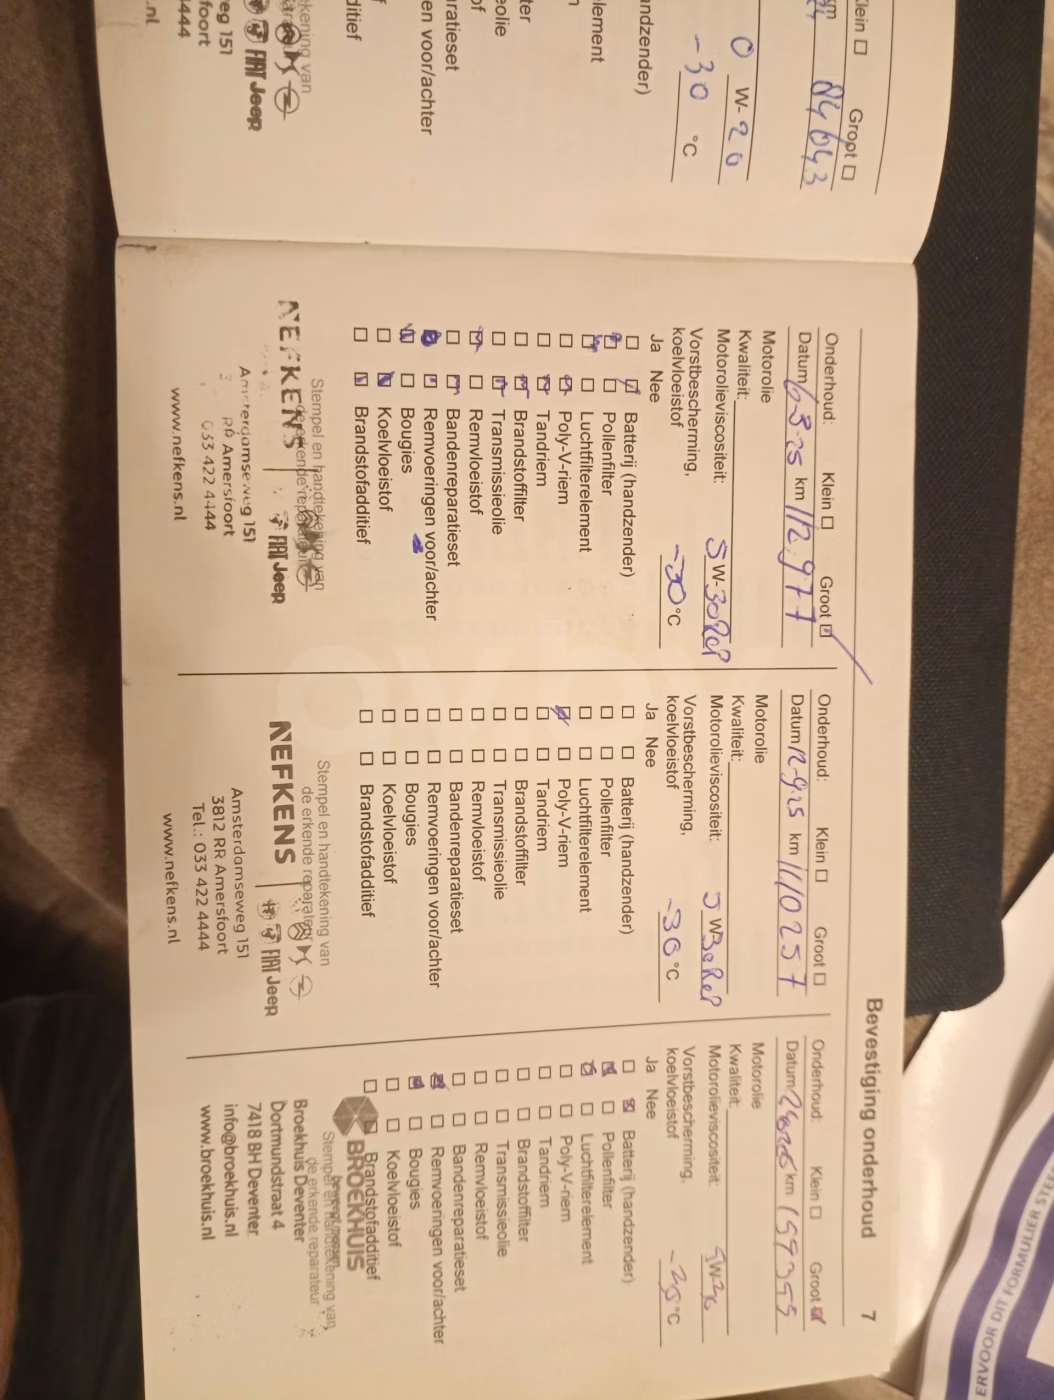 Klein
Groot
km
84643
0 W-20
-30 °C
andzender)
lement
eolie
en voor/achter
aratieset
ditief
FIAT Jeep
eg 151
sfoort
4444
.nl
Bevestiging onderhoud 7
Onderhoud: Klein Groot
Datum 6-3-25 km 112.977
Motorolie
Kwaliteit:
Motorolieviscositeit: 5 W-30
Vorstbescherming,
koelvloeistof -30 °C
Ja Nee
Batterij (handzender)
Pollenfilter
Luchtfilterelement
Poly-V-riem
Tandriem
Brandstoffilter
Transmissieolie
Remvloeistof
Bandenreparatieset
Remvoeringen voor/achter
Bougies
Koelvloeistof
Brandstofadditief
Stempel en handtekening van
de erkende reparateur
NEFKENS FIAT Jeep
Amsterdamseweg 151
Amersfoort
033 422 4444
www.nefkens.nl
Onderhoud: Klein Groot
Datum 12-9-25 km
Motorolie
Kwaliteit:
Motorolieviscositeit: 5 W-30
Vorstbescherming,
koelvloeistof -36 °C
Ja Nee
Batterij (handzender)
Pollenfilter
Luchtfilterelement
Poly-V-riem
Tandriem
Brandstoffilter
Transmissieolie
Remvloeistof
Bandenreparatieset
Remvoeringen voor/achter
Bougies
Koelvloeistof
Brandstofadditief
Stempel en handtekening van
de erkende reparateur
NEFKENS FIAT Jeep
Amsterdamseweg 151
3812 RR Amersfoort
Tel.: 033 422 4444
www.nefkens.nl
Onderhoud: Klein Groot
Datum km
Motorolie
Kwaliteit:
Motorolieviscositeit:
Vorstbescherming,
koelvloeistof °C
Ja Nee
Batterij (handzender)
Pollenfilter
Luchtfilterelement
Poly-V-riem
Tandriem
Brandstoffilter
Transmissieolie
Remvloeistof
Bandenreparatieset
Remvoeringen voor/achter
Bougies
Koelvloeistof
Brandstofadditief
BROEKHUIS
Stempel en handtekening van
de erkende reparateur
Broekhuis Deventer
Dortmundstraat 4
7418 BH Deventer
info@broekhuis.nl
www.broekhuis.nl
ERVOOR DIT FORMULIER